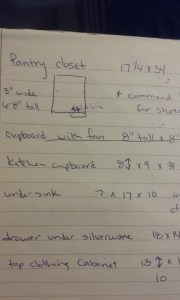 Pantry closet 17 1/4 x 31
3" wide
6'8" tall
* command
for shower
cupboard with fan 8" tall x 8"
Kitchen cupboard 8 x 9 x 31
under sink 7 x 17 x 10 in
drawer under silverware 18 x
top clothing Cabinet 13 x
10